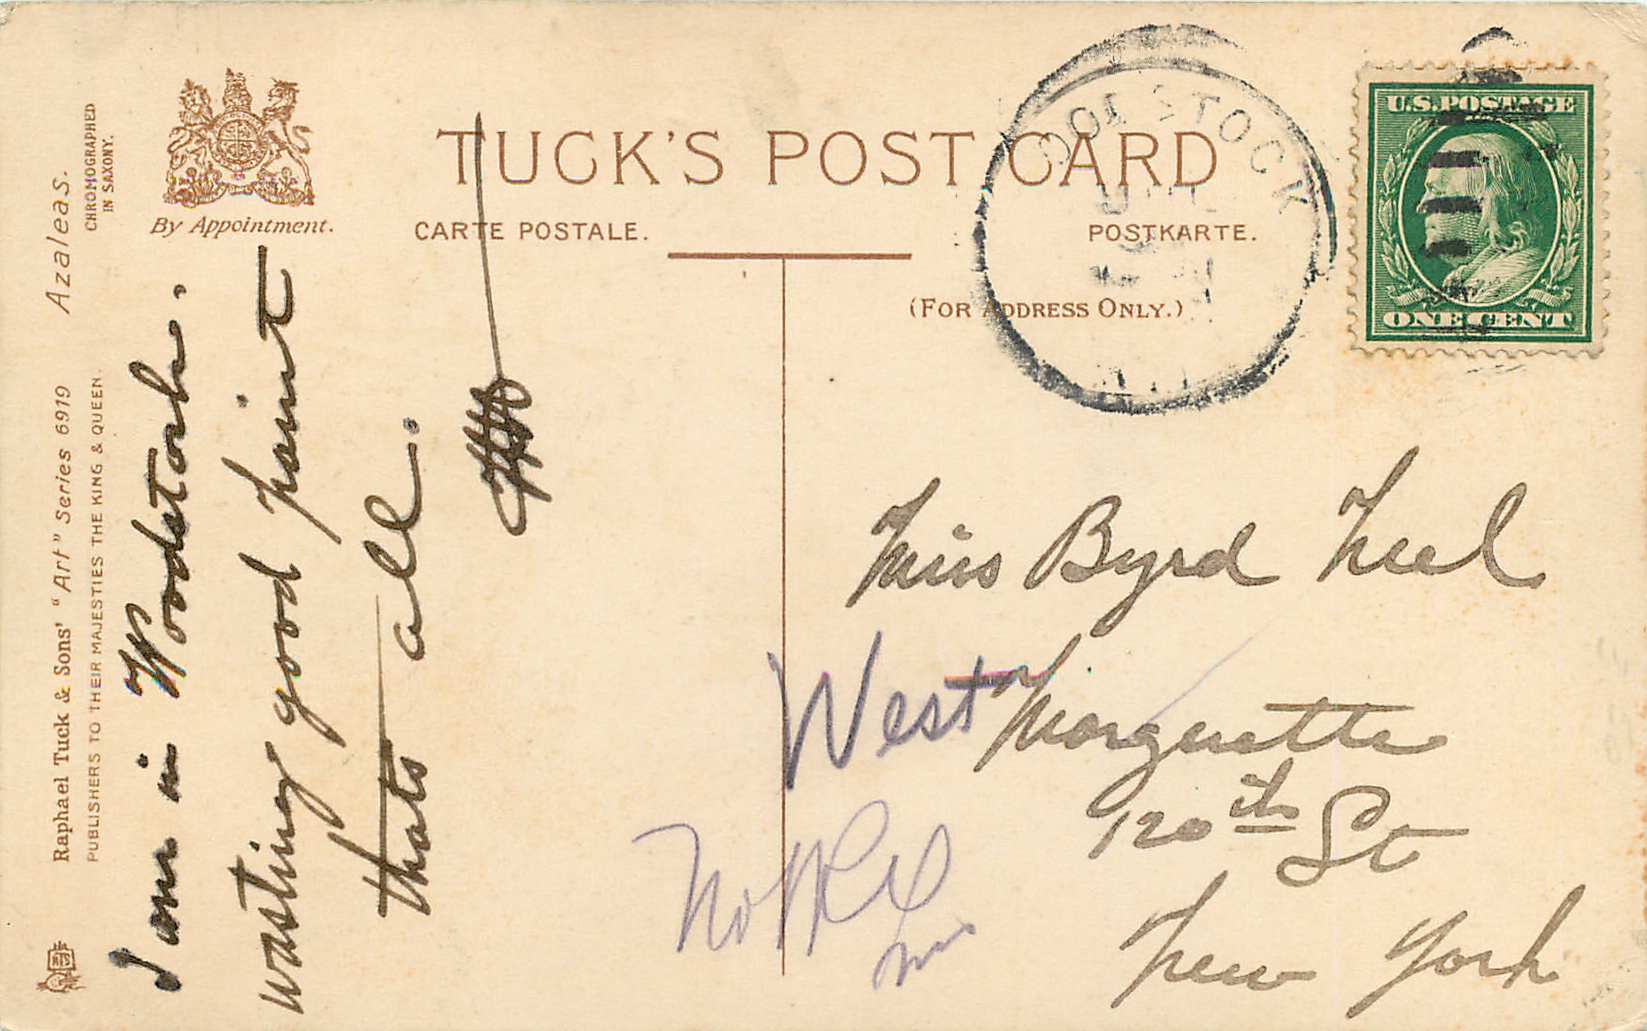 TUCK'S POST CARD
CARTE POSTALE.
POSTKARTE.
(FOR ADDRESS ONLY.)
By Appointment.
Raphael Tuck & Sons' "Art" Series 6919 Azaleas.
PUBLISHERS TO THEIR MAJESTIES THE KING & QUEEN.
CHROMOGRAPHED
IN SAXONY.
I am in Woodstock.
wasting good paint
thats all.
STOCK
U.S. POSTAGE
ONE CENT
Miss Byrd
West Marguerette
120th St
New York